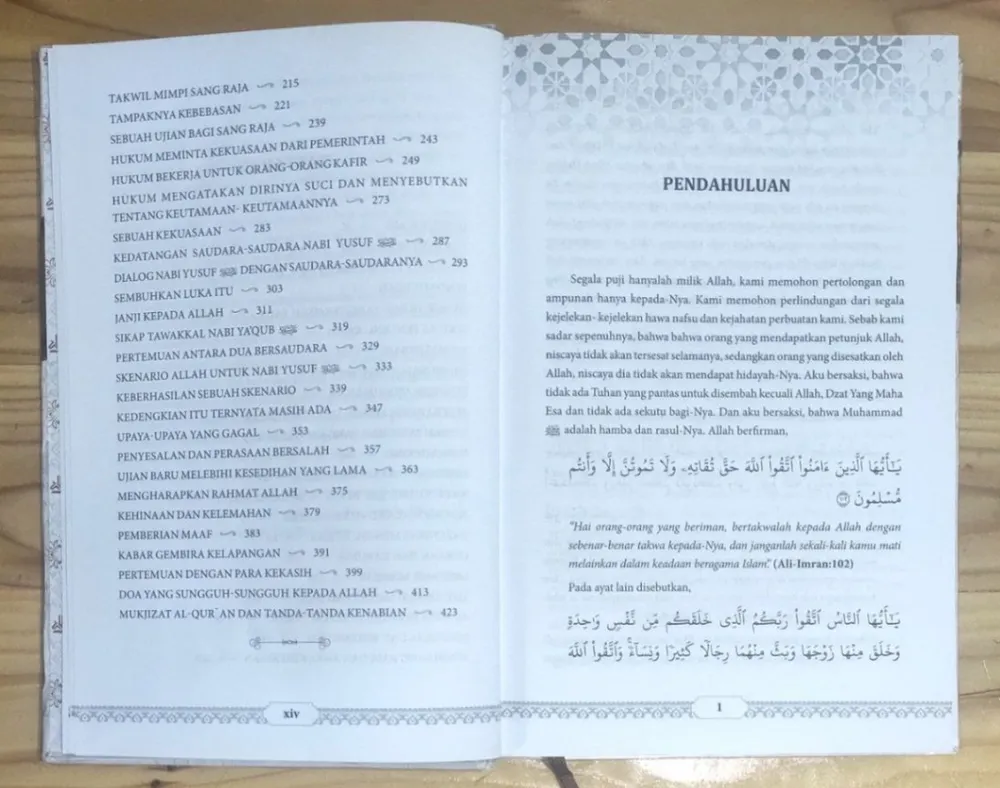 TAKWIL MIMPI SANG RAJA 215
TAMPAKNYA KEBEBASAN 221
SEBUAH UJIAN BAGI SANG RAJA 239
HUKUM MEMINTA KEKUASAAN DARI PEMERINTAH 243
HUKUM BEKERJA UNTUK ORANG-ORANG KAFIR 249
HUKUM MENGATAKAN DIRINYA SUCI DAN MENYEBUTKAN
TENTANG KEUTAMAAN- KEUTAMAANNYA 273
SEBUAH KEKUASAAN 283
KEDATANGAN SAUDARA-SAUDARA NABI YUSUF 287
DIALOG NABI YUSUF DENGAN SAUDARA-SAUDARANYA 293
SEMBUHKAN LUKA ITU 303
JANJI KEPADA ALLAH 311
SIKAP TAWAKKAL NABI YA'QUB 319
PERTEMUAN ANTARA DUA BERSAUDARA 329
SKENARIO ALLAH UNTUK NABI YUSUF 333
KEBERHASILAN SEBUAH SKENARIO 339
KEDENGKIAN ITU TERNYATA MASIH ADA 347
UPAYA-UPAYA YANG GAGAL 353
PENYESALAN DAN PERASAAN BERSALAH 357
UJIAN BARU MELEBIHI KESEDIHAN YANG LAMA 363
MENGHARAPKAN RAHMAT ALLAH 375
KEHINAAN DAN KELEMAHAN 379
PEMBERIAN MAAF 383
KABAR GEMBIRA KELAPANGAN 391
PERTEMUAN DENGAN PARA KEKASIH 399
DOA YANG SUNGGUH-SUNGGUH KEPADA ALLAH 413
MUKJIZAT AL-QUR`AN DAN TANDA-TANDA KENABIAN 423
xiv
PENDAHULUAN
Segala puji hanyalah milik Allah, kami memohon pertolongan dan
ampunan hanya kepada-Nya. Kami memohon perlindungan dari segala
kejelekan- kejelekan hawa nafsu dan kejahatan perbuatan kami. Sebab kami
sadar sepenuhnya, bahwa bahwa orang yang mendapatkan petunjuk Allah,
niscaya tidak akan tersesat selamanya, sedangkan orang yang disesatkan oleh
Allah, niscaya dia tidak akan mendapat hidayah-Nya. Aku bersaksi, bahwa
tidak ada Tuhan yang pantas untuk disembah kecuali Allah, Dzat Yang Maha
Esa dan tidak ada sekutu bagi-Nya. Dan aku bersaksi, bahwa Muhammad
ﷺ adalah hamba dan rasul-Nya. Allah berfirman,
يَـٰٓأَيُّهَا ٱلَّذِينَ ءَامَنُواْ ٱتَّقُواْ ٱللَّهَ حَقَّ تُقَاتِهِۦ وَلَا تَمُوتُنَّ إِلَّا وَأَنتُم
مُّسْلِمُونَ ١٠٢
"Hai orang-orang yang beriman, bertakwalah kepada Allah dengan
sebenar-benar takwa kepada-Nya, dan janganlah sekali-kali kamu mati
melainkan dalam keadaan beragama Islam." (Ali-Imran:102)
Pada ayat lain disebutkan,
يَـٰٓأَيُّهَا ٱلنَّاسُ ٱتَّقُواْ رَبَّكُمُ ٱلَّذِى خَلَقَكُم مِّن نَّفْسٍ وَٰحِدَةٍ
وَخَلَقَ مِنْهَا زَوْجَهَا وَبَثَّ مِنْهُمَا رِجَالًا كَثِيرًا وَنِسَآءً ۚ وَٱتَّقُواْ ٱللَّهَ
1